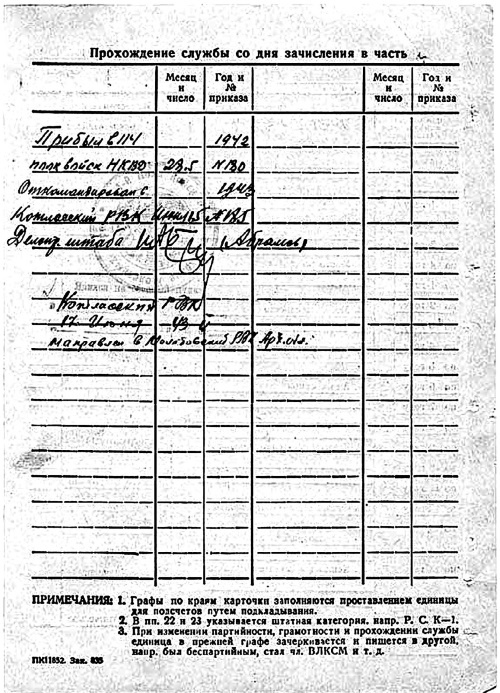 Прохождение службы со дня зачисления в часть
Месяц и число
Год и № приказа
Месяц и число
Год и № приказа
Прибыл в 114 1942
полк войск НКВД 28.5 №130
Откомандирован в 1943
Котласский РВК №125
штаба (Абрамов)
Котласский РВК
17 Июня 43
направлен в РВК Арх. обл.
ПРИМЕЧАНИЯ: 1. Графы по краям карточки заполняются проставлением единицы
для подсчетов путем подкладывания.
2. В пп. 22 и 23 указывается штатная категория, напр. Р. С. К—1.
3. При изменении партийности, грамотности и прохождении службы
единица в прежней графе зачеркивается и пишется в другой,
напр. был беспартийным, стал чл. ВЛКСМ и т. д.
ПК11852. Зак. 835